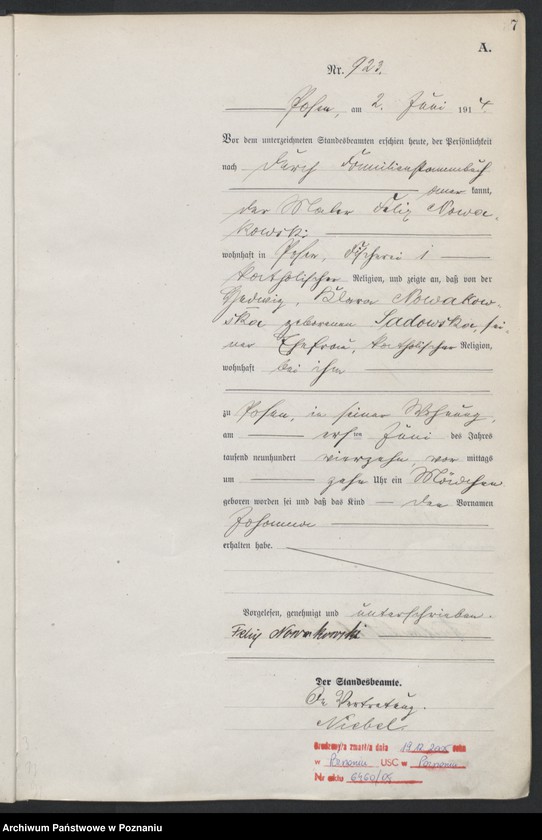 7
A.
Nr. 923.
Posen, am 2. Juni 1914.
Vor dem unterzeichneten Standesbeamten erschien heute, der Persönlichkeit
nach durch Familienstammbuch
aner kannt,
der Maler Felix Nowa-
kowski
wohnhaft in Posen, Fischerei 1
katholischer Religion, und zeigte an, daß von der
Hedwig, Klara Nowakow-
ska geborenen Sadowska, sei-
ner Ehefrau, katholischer Religion,
wohnhaft bei ihm
zu Posen, in seiner Wohnung,
am ersten Juni des Jahres
tausend neunhundert vierzehn, vor mittags
um zehn Uhr ein Mädchen
geboren worden sei und daß das Kind den Vornamen
Johanna
erhalten habe.
Vorgelesen, genehmigt und unterschrieben.
Felix Nowakowski
Der Standesbeamte.
In Vertretung.
Niebel
Urodzony/a zmarł/a dnia 19.12.2005 roku
w Poznaniu USC w Poznaniu
Nr aktu 6460/05
Archiwum Państwowe w Poznaniu